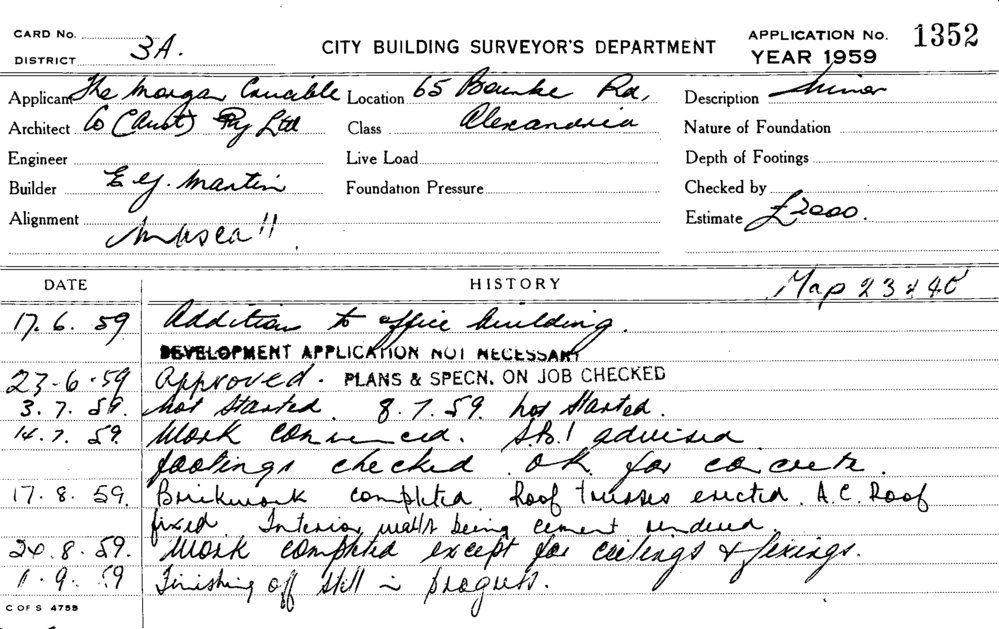 CARD No.
DISTRICT 3A.
CITY BUILDING SURVEYOR'S DEPARTMENT
APPLICATION No. 1352
YEAR 1959
Applicant The Morgan Crucible Location 65 Bourke Rd, Description Minor
Architect Co (Aust) Pty Ltd Class Alexandria Nature of Foundation
Engineer Live Load Depth of Footings
Builder E J. Martin Foundation Pressure Checked by
Alignment Estimate £2000.
DATE HISTORY Map 23 & 40
17.6.59 Addition to office building.
DEVELOPMENT APPLICATION NOT NECESSARY
23-6-59 Approved. PLANS & SPECN. ON JOB CHECKED
3.7.59. not started 8.7.59. not started.
14.7.59. Work commenced. advised
footings checked O.K. for concrete.
17.8.59. Brickwork completed Roof trusses erected. A.C. Roof
fixed Interior walls being cement rendered.
24.8.59. Work completed except for ceilings & fixings.
1.9.59 Finishing off still in progress.
C OF S 4755